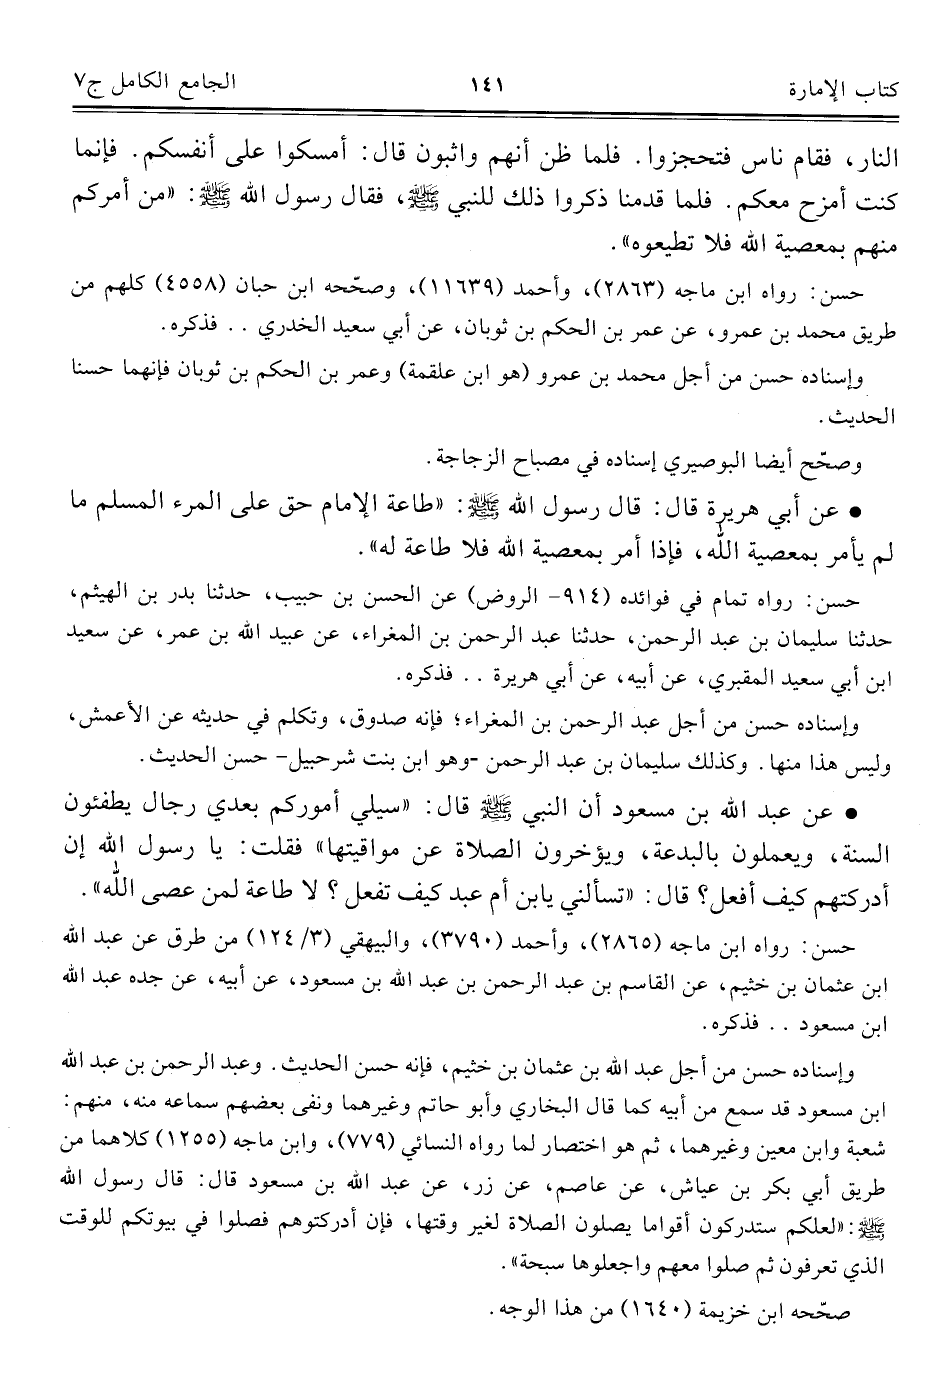 كتاب الإمارة ١٤١ الجامع الكامل ج٧
النار، فقام ناس فتحجزوا. فلما ظن أنهم واثبون قال: أمسكوا على أنفسكم. فإنما
كنت أمزح معكم. فلما قدمنا ذكروا ذلك للنبي ﷺ، فقال رسول الله ﷺ: «من أمركم
منهم بمعصية الله فلا تطيعوه».
حسن: رواه ابن ماجه (٢٨٦٣)، وأحمد (١١٦٣٩)، وصحّحه ابن حبان (٤٥٥٨) كلهم من
طريق محمد بن عمرو، عن عمر بن الحكم بن ثوبان، عن أبي سعيد الخدري .. فذكره.
وإسناده حسن من أجل محمد بن عمرو (هو ابن علقمة) وعمر بن الحكم بن ثوبان فإنهما حسنا
الحديث.
وصحّح أيضا البوصيري إسناده في مصباح الزجاجة.
• عن أبي هريرة قال: قال رسول الله ﷺ: «طاعة الإمام حق على المرء المسلم ما
لم يأمر بمعصية الله، فإذا أمر بمعصية الله فلا طاعة له».
حسن: رواه تمام في فوائده (٩١٤- الروض) عن الحسن بن حبيب، حدثنا بدر بن الهيثم،
حدثنا سليمان بن عبد الرحمن، حدثنا عبد الرحمن بن المغراء، عن عبيد الله بن عمر، عن سعيد
ابن أبي سعيد المقبري، عن أبيه، عن أبي هريرة .. فذكره.
وإسناده حسن من أجل عبد الرحمن بن المغراء؛ فإنه صدوق، وتكلم في حديثه عن الأعمش،
وليس هذا منها. وكذلك سليمان بن عبد الرحمن -وهو ابن بنت شرحبيل- حسن الحديث.
• عن عبد الله بن مسعود أن النبي ﷺ قال: «سيلي أموركم بعدي رجال يطفئون
السنة، ويعملون بالبدعة، ويؤخرون الصلاة عن مواقيتها» فقلت: يا رسول الله إن
أدركتهم كيف أفعل؟ قال: «تسألني يابن أم عبد كيف تفعل؟ لا طاعة لمن عصى الله».
حسن: رواه ابن ماجه (٢٨٦٥)، وأحمد (٣٧٩٠)، والبيهقي (٣/ ١٢٤) من طرق عن عبد الله
ابن عثمان بن خثيم، عن القاسم بن عبد الرحمن بن عبد الله بن مسعود، عن أبيه، عن جده عبد الله
ابن مسعود .. فذكره.
وإسناده حسن من أجل عبد الله بن عثمان بن خثيم، فإنه حسن الحديث. وعبد الرحمن بن عبد الله
ابن مسعود قد سمع من أبيه كما قال البخاري وأبو حاتم وغيرهما ونفى بعضهم سماعه منه، منهم:
شعبة وابن معين وغيرهما، ثم هو اختصار لما رواه النسائي (٧٧٩)، وابن ماجه (١٢٥٥) كلاهما من
طريق أبي بكر بن عياش، عن عاصم، عن زر، عن عبد الله بن مسعود قال: قال رسول الله
ﷺ: «لعلكم ستدركون أقواما يصلون الصلاة لغير وقتها، فإن أدركتوهم فصلوا في بيوتكم للوقت
الذي تعرفون ثم صلوا معهم واجعلوها سبحة».
صحّحه ابن خزيمة (١٦٤٠) من هذا الوجه.